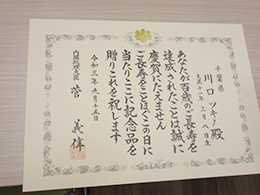 千葉県
川口 ツキノ 殿
大正十一年三月八日生
あなたが百歳のご長寿を
達成されたことは誠に
慶賀にたえません
ご長寿をことほぐこの日に
当たりここに記念品を
贈りこれを祝します
令和三年九月十五日
内閣総理大臣 菅 義偉